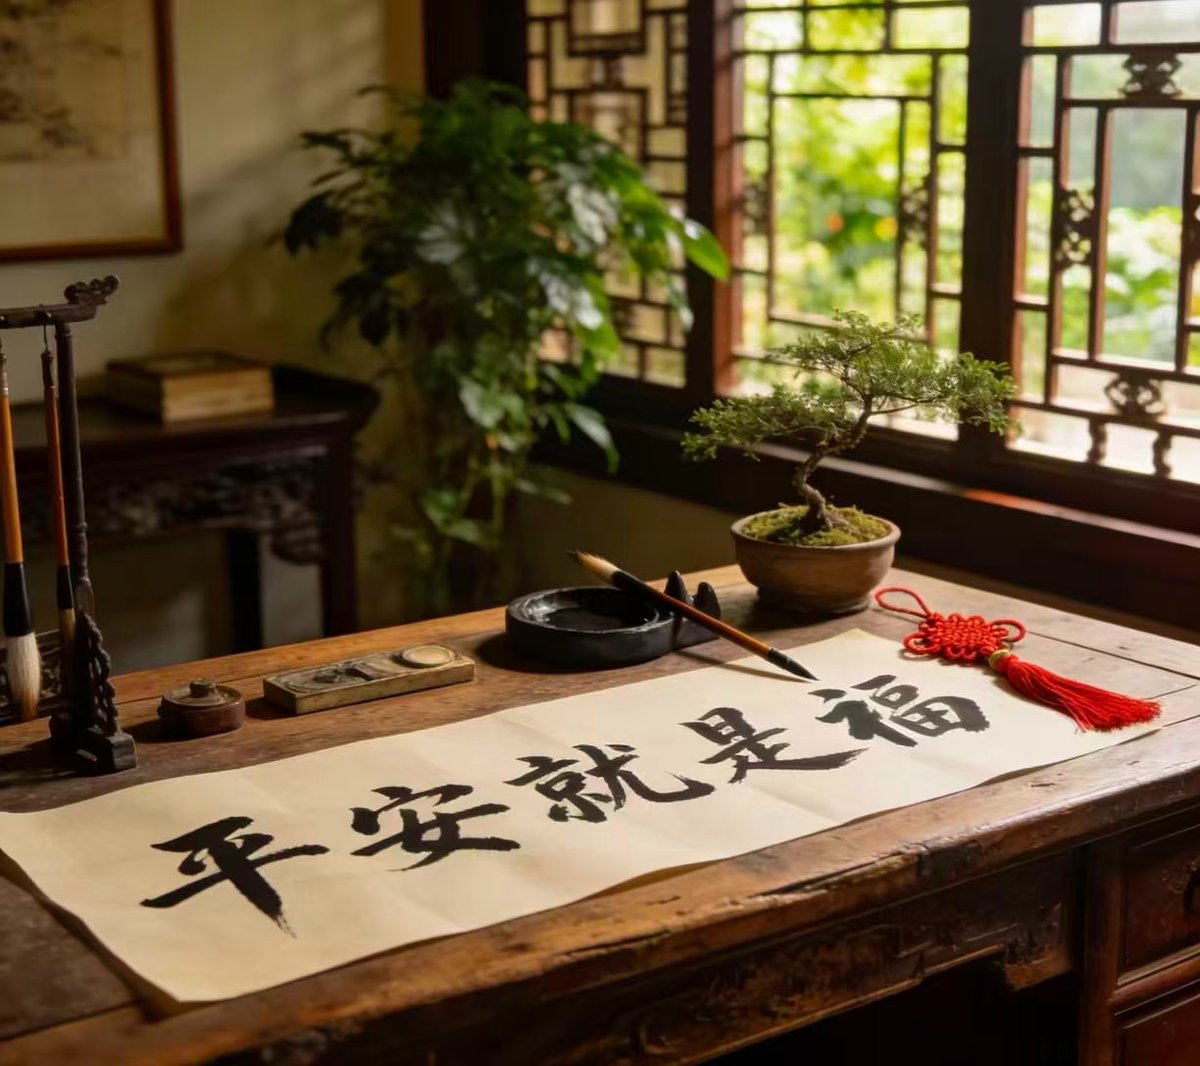 平安就是福